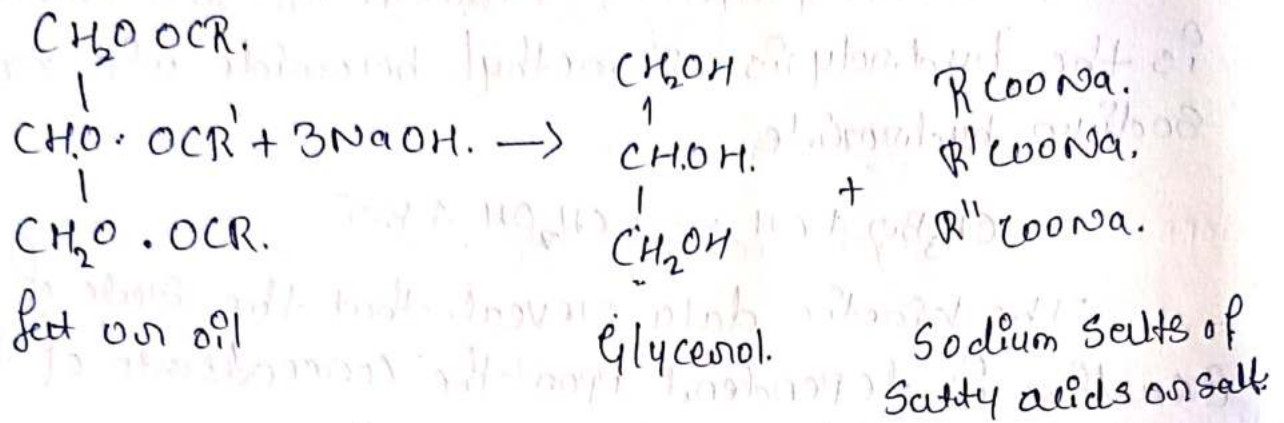 CH₂O OCR.
|
CHO · OCR' + 3NaOH. →
|
CH₂O . OCR.
fat or oil
CH₂OH
|
CH.OH.
|
CH₂OH
Glycerol.
+
RCOONa.
R'COONa.
R"COONa.
Sodium Salts of
Satty acids or salt.